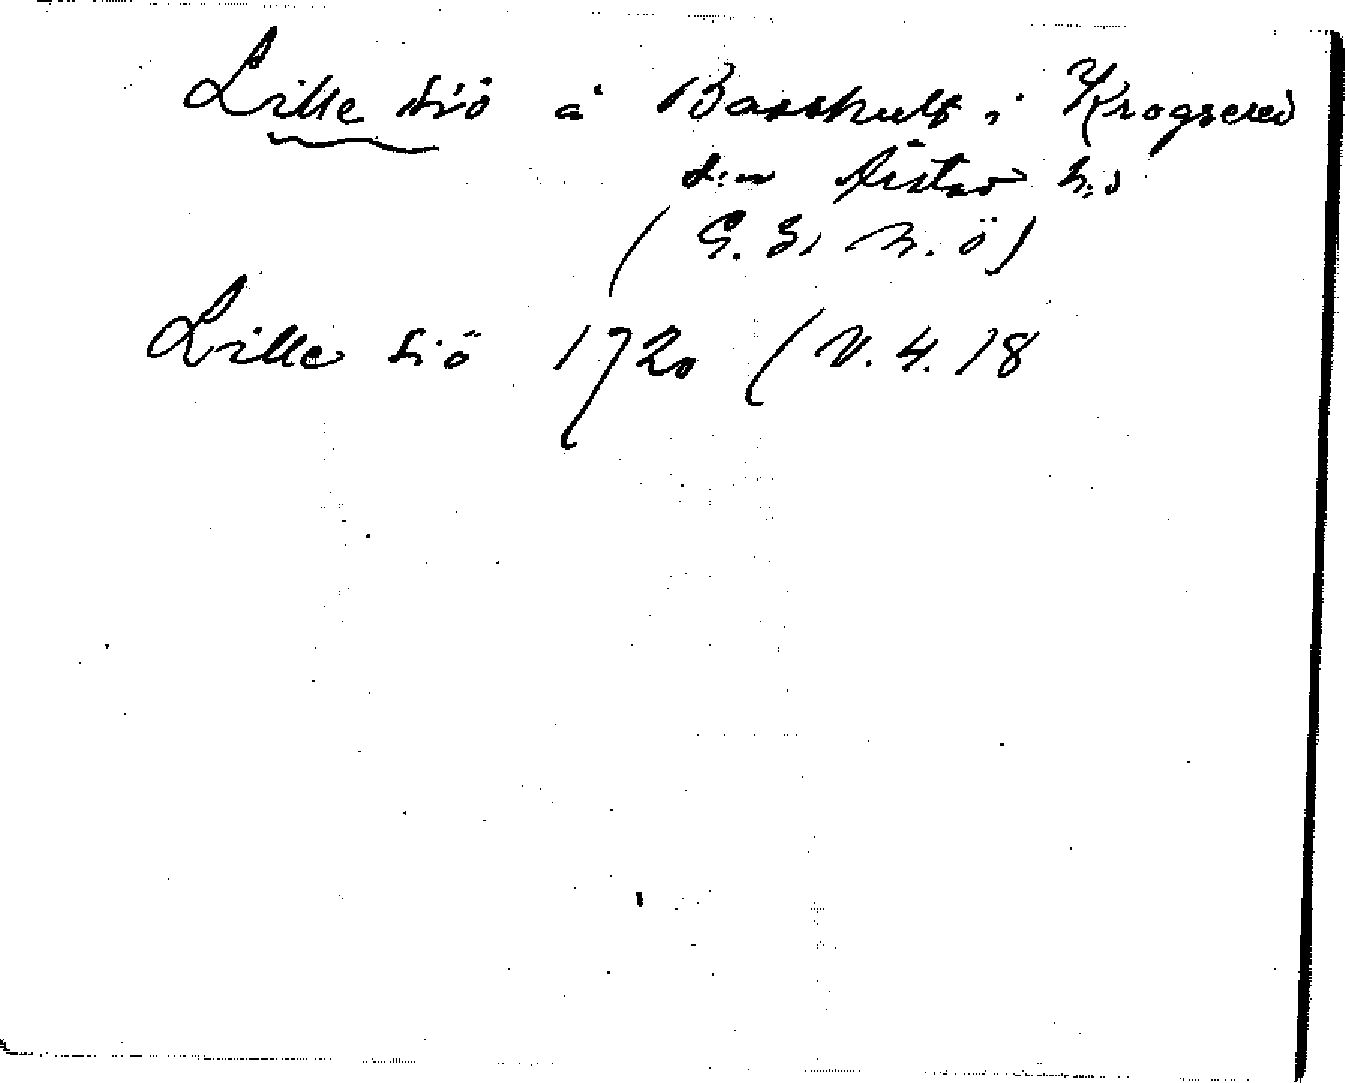 Lille siö å Barkhult i Krogsered
s:n Årstad h:d
(G. S. N. Ö)
Lille siö 1720 (V. 4. 18